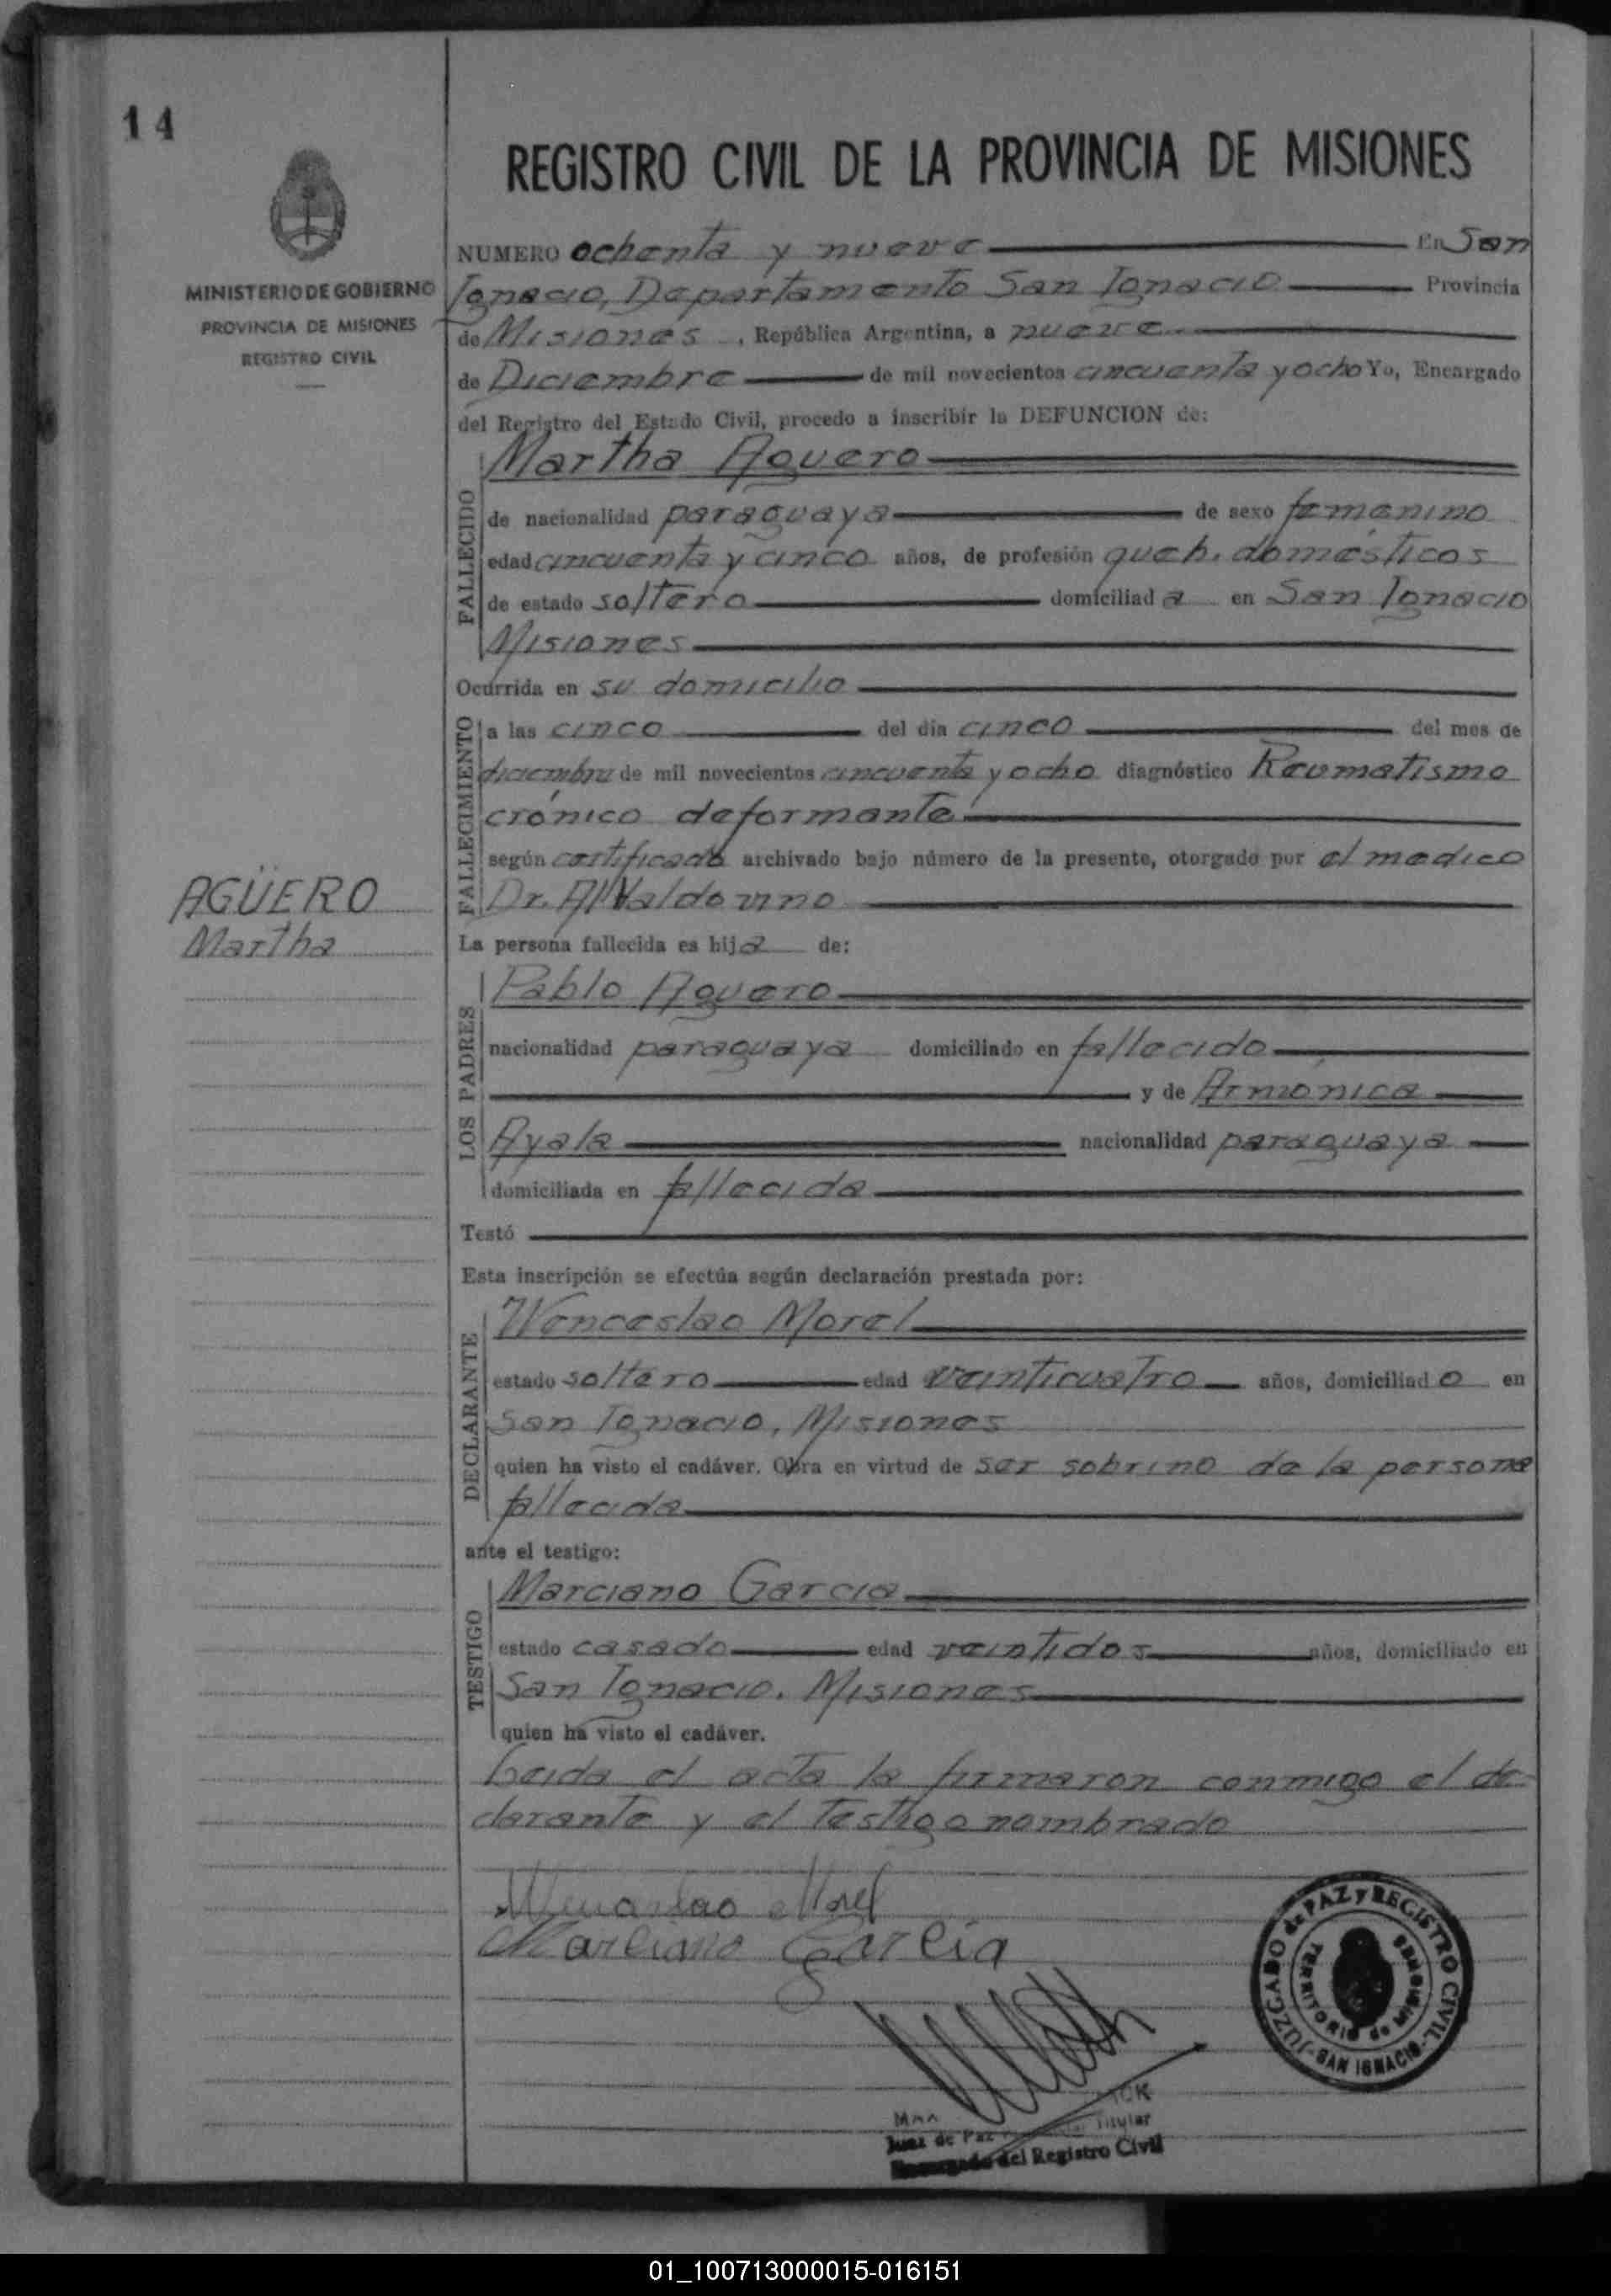 14
REGISTRO CIVIL DE LA PROVINCIA DE MISIONES
MINISTERIO DE GOBIERNO
PROVINCIA DE MISIONES
REGISTRO CIVIL
NUMERO ochenta y nueve En San
Ignacio, Departamento San Ignacio Provincia
de Misiones, República Argentina, a nueve
de Diciembre de mil novecientos cincuenta y ocho Yo, Encargado
del Registro del Estado Civil, procedo a inscribir la DEFUNCION de:
FALLECIDO
Martha Aguero
de nacionalidad paraguaya de sexo femenino
edad cincuenta y cinco años, de profesión queh. domésticos
de estado soltera domiciliad a en San Ignacio
Misiones
Ocurrida en su domicilio
FALLECIMIENTO
a las cinco del dia cinco del mes de
diciembre de mil novecientos cincuenta y ocho diagnóstico Reumatismo
crónico deformante
según certificado archivado bajo número de la presente, otorgado por el medico
Dr. Valdovino
AGÜERO
Martha
La persona fallecida es hija de:
LOS PADRES
Pablo Aguero
nacionalidad paraguaya domiciliado en fallecido
y de Armónica
Ayala nacionalidad paraguaya
domiciliada en fallecida
Testó
Esta inscripción se efectúa según declaración prestada por:
DECLARANTE
Wenceslao Morel
estado soltero edad veinticuatro años, domiciliad o en
San Ignacio, Misiones
quien ha visto el cadáver. Obra en virtud de ser sobrino de la persona
fallecida
ante el testigo:
TESTIGO
Marciano Garcia
estado casado edad veintidos años, domiciliado en
San Ignacio. Misiones
quien ha visto el cadáver.
Leida el acta la firmaron conmigo el de-
clarante y el testigo nombrado
Wenceslao Morel
Marciano Garcia
JUZGADO de PAZ y REGISTRO CIVIL
TERRITORIO de MISIONES
SAN IGNACIO
Titular
Juez de Paz
Encargado del Registro Civil
01_100713000015-016151